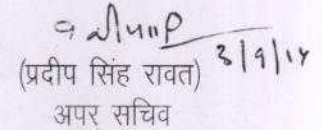 3/9/14
(प्रदीप सिंह रावत)
अपर सचिव